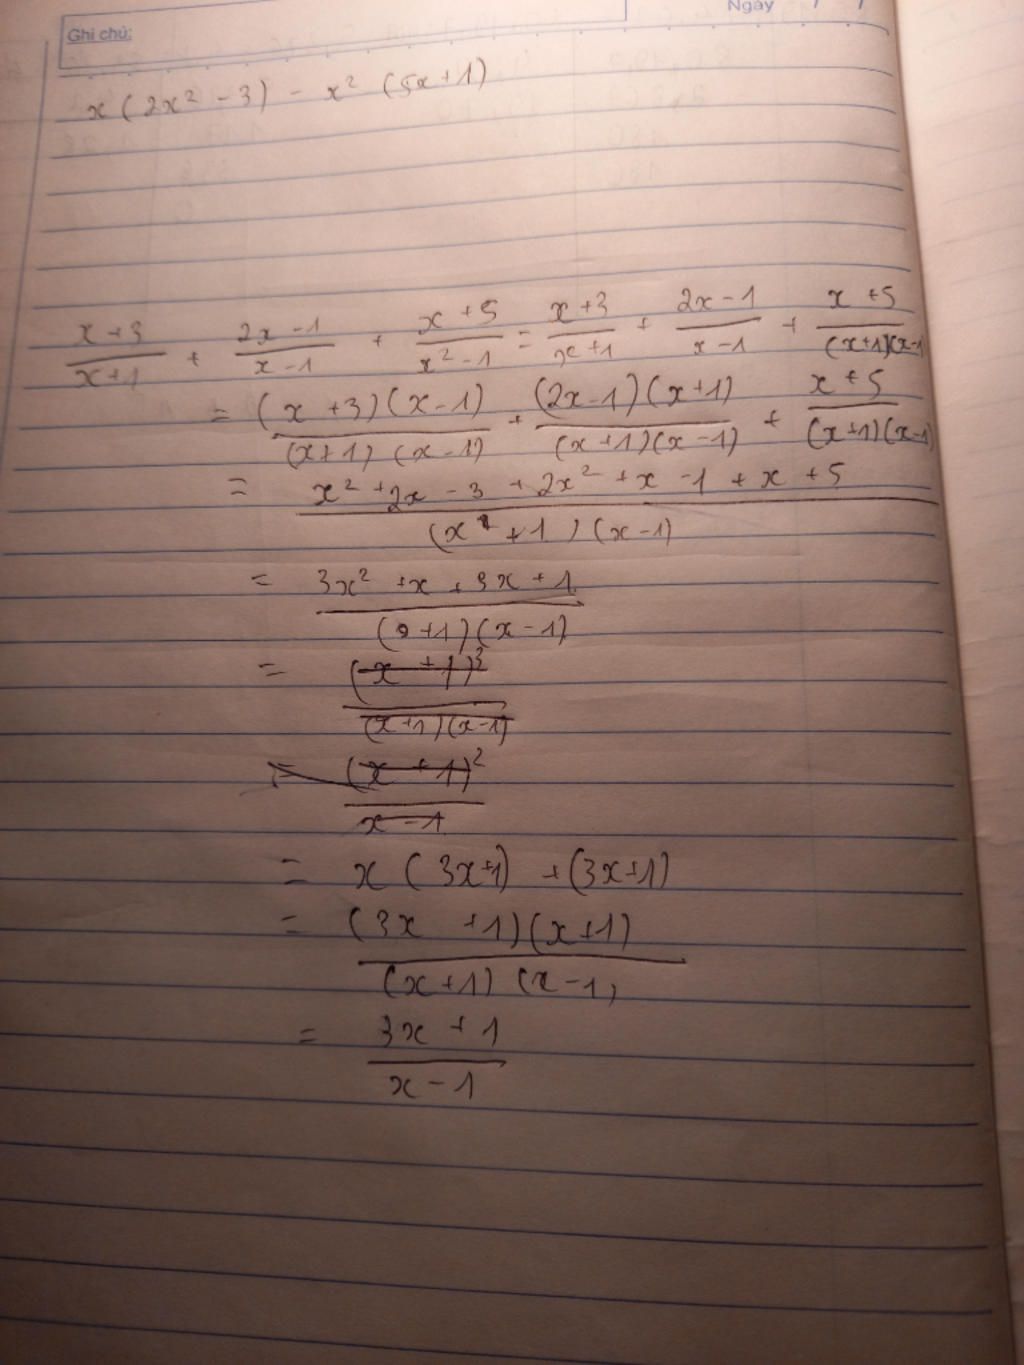 Ghi chú:
Ngày / /
x(2x² - 3) - x² (5x+1)
\frac{x+3}{x+1} + \frac{2x-1}{x-1} + \frac{x+5}{x²-1} = \frac{x+3}{x+1} + \frac{2x-1}{x-1} + \frac{x+5}{(x+1)(x-1}
= \frac{(x+3)(x-1)}{(x+1)(x-1)} + \frac{(2x-1)(x+1)}{(x+1)(x-1)} + \frac{x+5}{(x+1)(x-1)}
= \frac{x²+2x-3+2x²+x-1+x+5}{(x+1)(x-1)}
= \frac{3x²+x+3x+1}{(+1)(x-1)}
= \frac{(x+1)³}{(x+1)(x-1)}
= \frac{(x+1)²}{x-1}
= x(3x+1) + (3x+1)
= \frac{(3x+1)(x+1)}{(x+1)(x-1)}
= \frac{3x+1}{x-1}